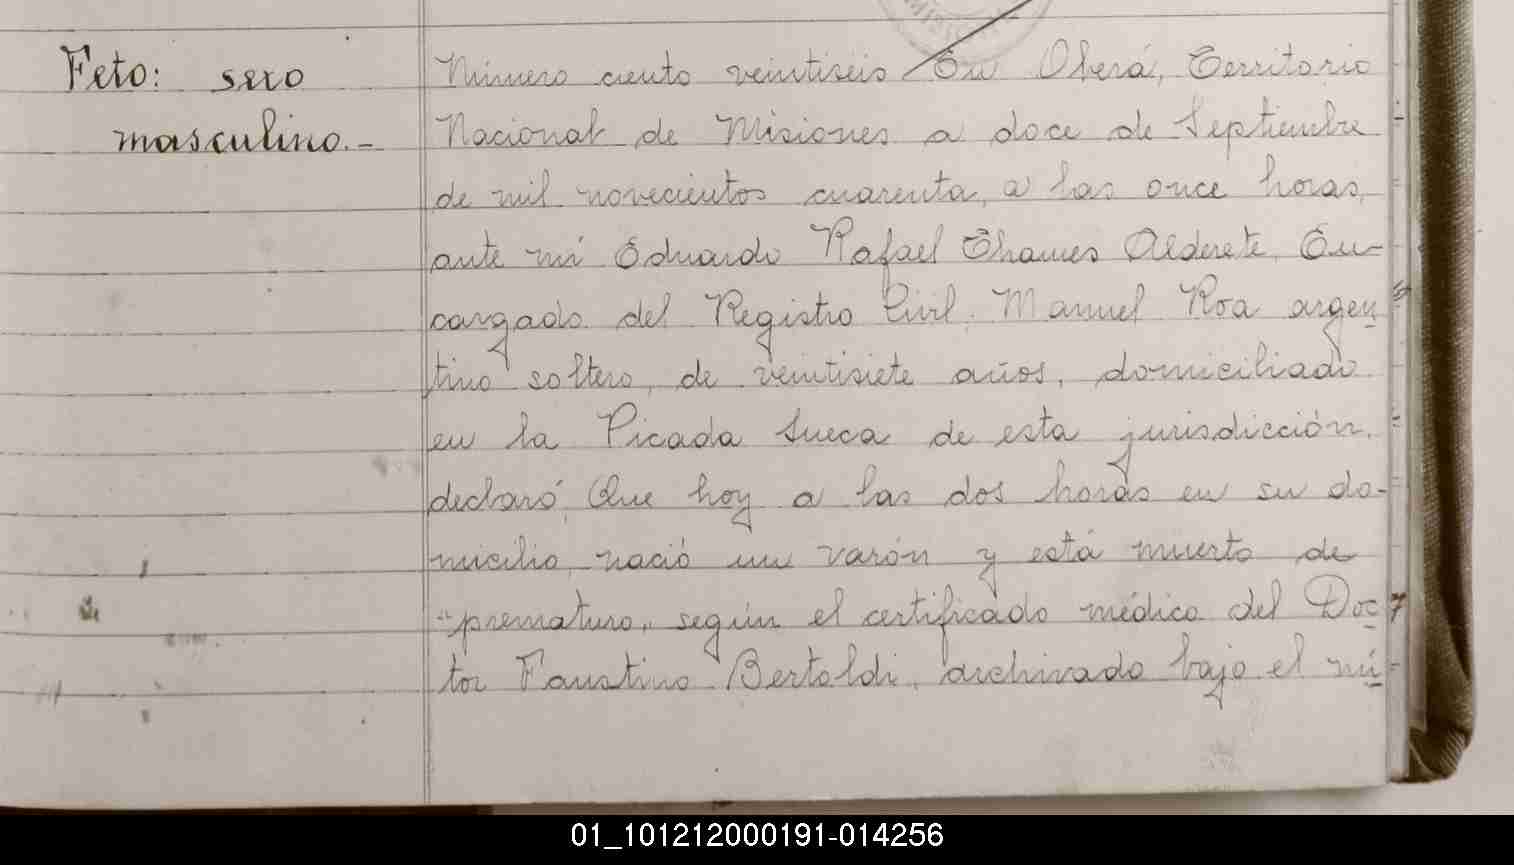 Feto: sexo
masculino.-
Número ciento veintiseis En Oberá, Territorio
Nacional de Misiones a doce de Septiembre
de mil novecientos cuarenta, a las once horas,
ante mí Eduardo Rafael Chames Alderete, En-
cargado del Registro Civil, Manuel Roa argen
tino soltero, de veintisiete años, domiciliado
en la Picada Sueca de esta jurisdicción,
declaró: Que hoy a las dos horas en su do-
micilio, nació un varón y está muerto de
"prematuro", según el certificado médico del Doc
tor Faustino Bertoldi, archivado bajo el nú
01_101212000191-014256